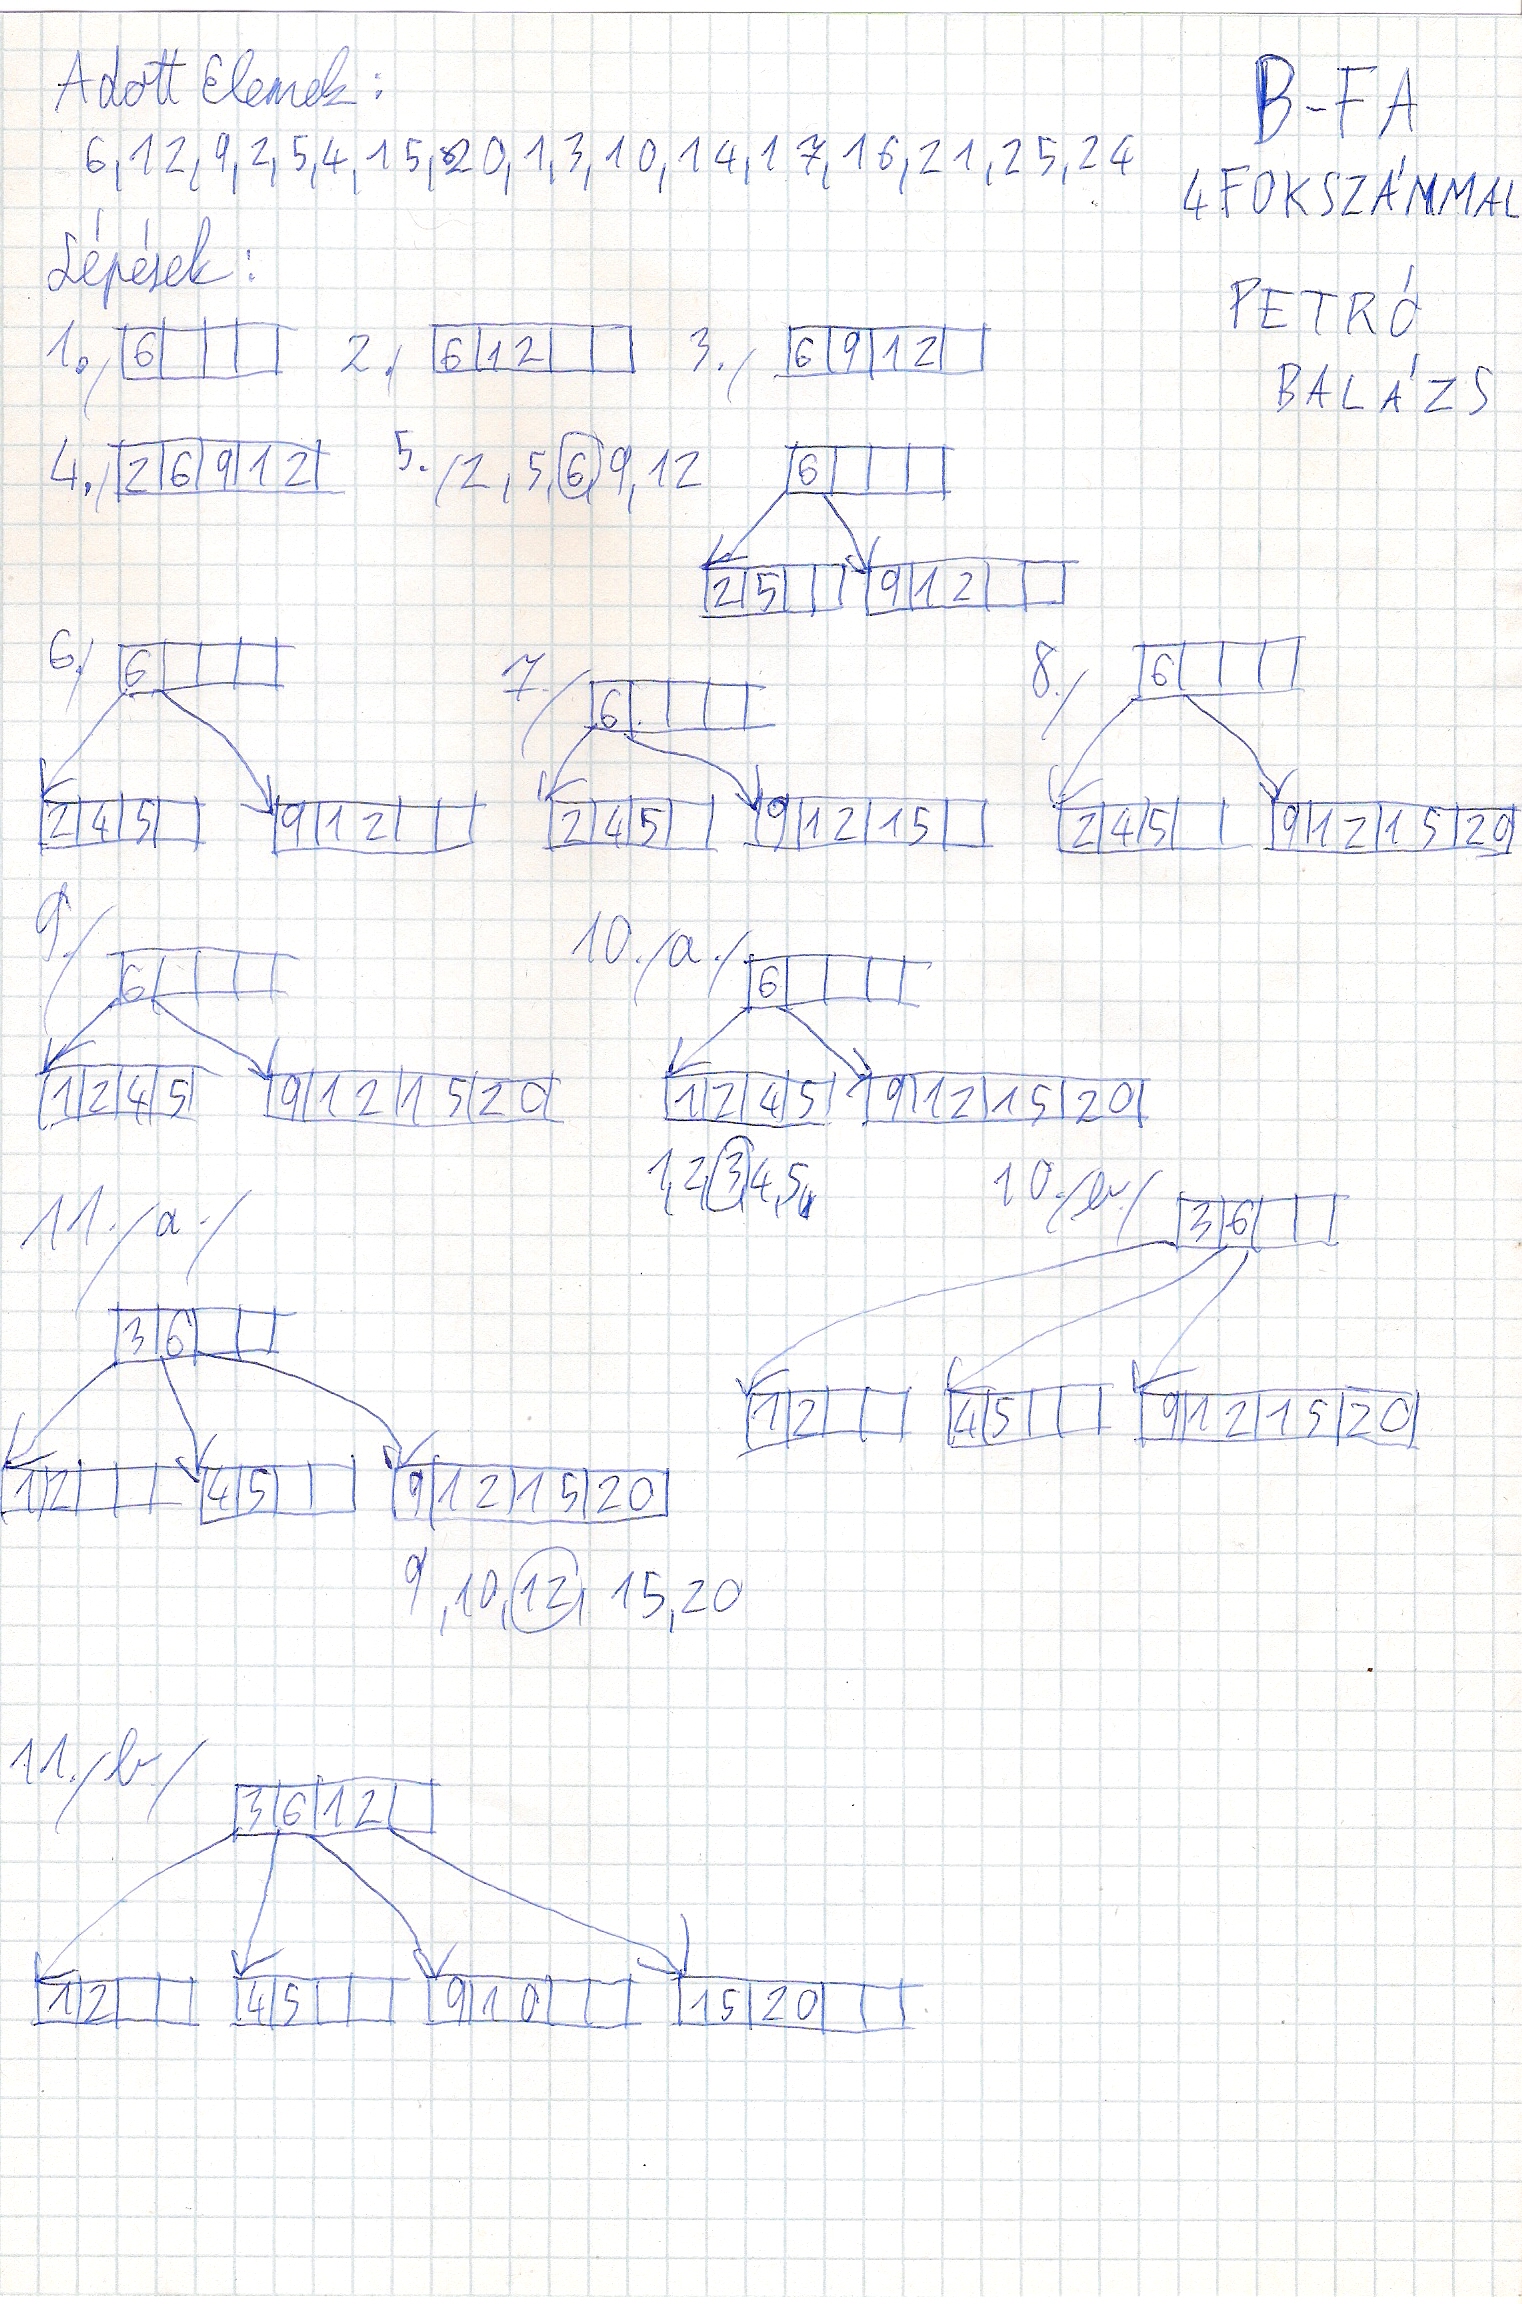 Adott Elemek:
B-FA
6,12,9,2,5,4,15,20,1,3,10,14,17,16,21,25,24
4 FOKSZÁMMAL
Lépések:
PETRÓ
BALÁZS
1./ 6
2./ 6 12
3./ 6 9 12
4./ 2 6 9 12
5./ 2,5,6,9,12
6
2 5
9 12
6./ 6
2 4 5
9 12
7./ 6
2 4 5
9 12 15
8./ 6
2 4 5
9 12 15 20
9./ 6
1 2 4 5
9 12 15 20
10./a./ 6
1 2 4 5
9 12 15 20
1,2,3,4,5
10./b./ 3 6
1 2
4 5
9 12 15 20
11./a./
3 6
1 2
4 5
9 12 15 20
9,10,12,15,20
11./b./
3 6 12
1 2
4 5
9 10
15 20